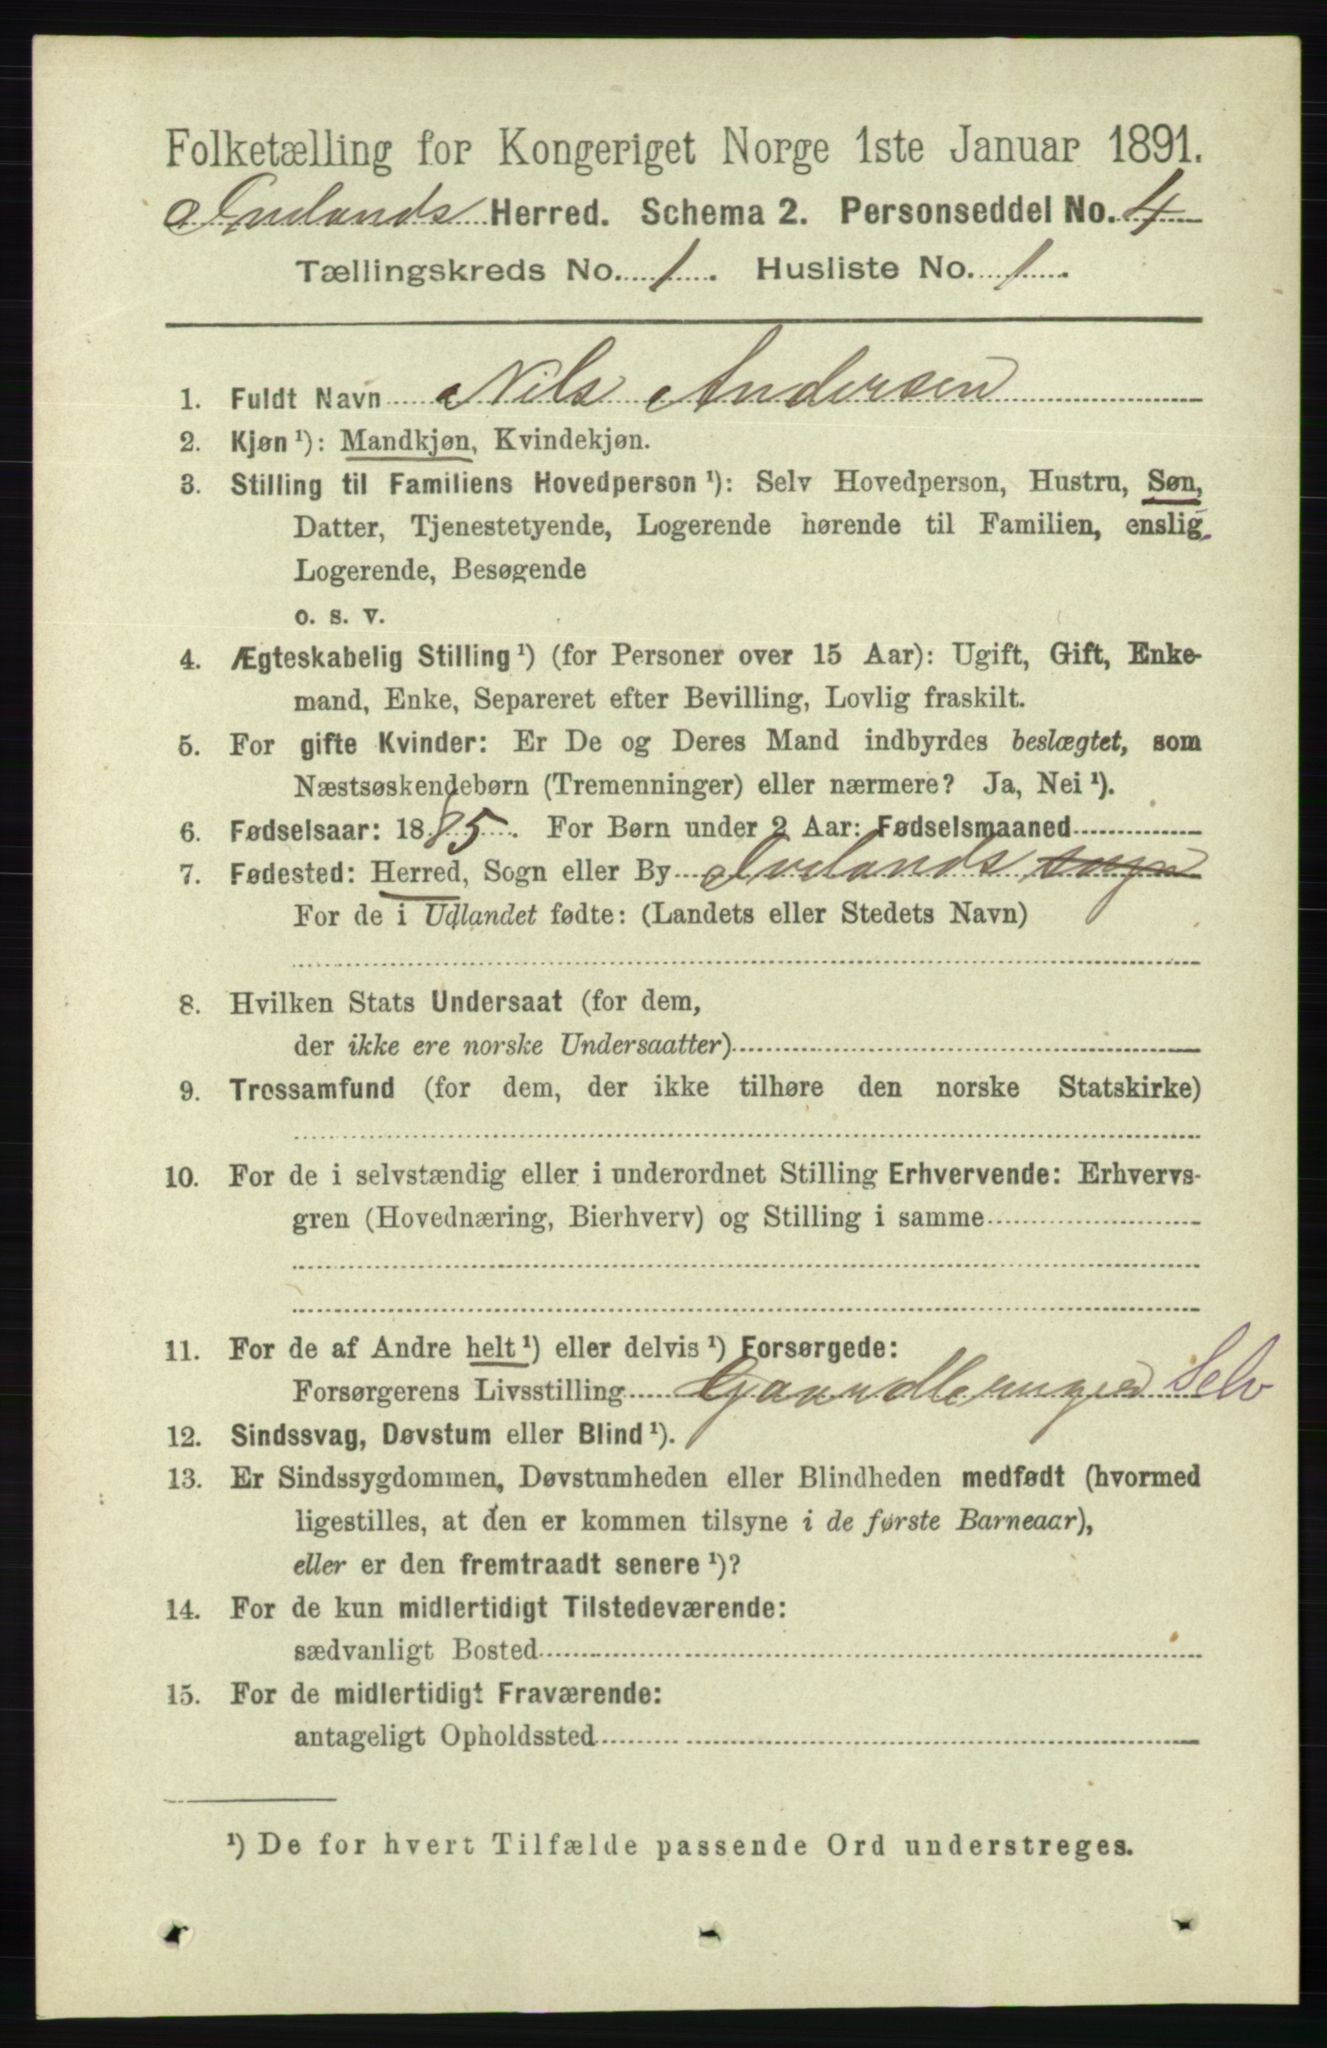 Folketælling for Kongeriget Norge 1ste Januar 1891.
Ivelands Herred. Schema 2. Personseddel No. 4
Tællingskreds No. 1. Husliste No. 1.
1. Fuldt Navn Nils Andersen
2. Kjøn ¹): Mandkjøn, Kvindekjøn.
3. Stilling til Familiens Hovedperson ¹): Selv Hovedperson, Hustru, Søn,
Datter, Tjenestetyende, Logerende hørende til Familien, enslig
Logerende, Besøgende
o. s. v.
4. Ægteskabelig Stilling ¹) (for Personer over 15 Aar): Ugift, Gift, Enke-
mand, Enke, Separeret efter Bevilling, Lovlig fraskilt.
5. For gifte Kvinder: Er De og Deres Mand indbyrdes beslægtet, som
Næstsøskendebørn (Tremenninger) eller nærmere? Ja, Nei ¹).
6. Fødselsaar: 1885. For Børn under 2 Aar: Fødselsmaaned
7. Fødested: Herred, Sogn eller By Ivelands sogn
For de i Udlandet fødte: (Landets eller Stedets Navn)
8. Hvilken Stats Undersaat (for dem,
der ikke ere norske Undersaatter)
9. Trossamfund (for dem, der ikke tilhøre den norske Statskirke)
10. For de i selvstændig eller i underordnet Stilling Erhvervende: Erhvervs-
gren (Hovednæring, Bierhverv) og Stilling i samme
11. For de af Andre helt ¹) eller delvis ¹) Forsørgede:
Forsørgerens Livsstilling Selv
12. Sindssvag, Døvstum eller Blind ¹).
13. Er Sindssygdommen, Døvstumheden eller Blindheden medfødt (hvormed
ligestilles, at den er kommen tilsyne i de første Barneaar),
eller er den fremtraadt senere ¹)?
14. For de kun midlertidigt Tilstedeværende:
sædvanligt Bosted
15. For de midlertidigt Fraværende:
antageligt Opholdssted
¹) De for hvert Tilfælde passende Ord understreges.